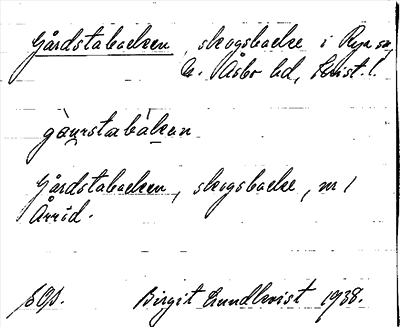 Gårdstabacken, skogsbacke i Rya sn,
N. Åsbo hd, Krist. l.
gàu̯rstabàkan
Gårdstabacken, skogsbacke, nr 1
Årröd.
Birgit Lundkvist 1938.